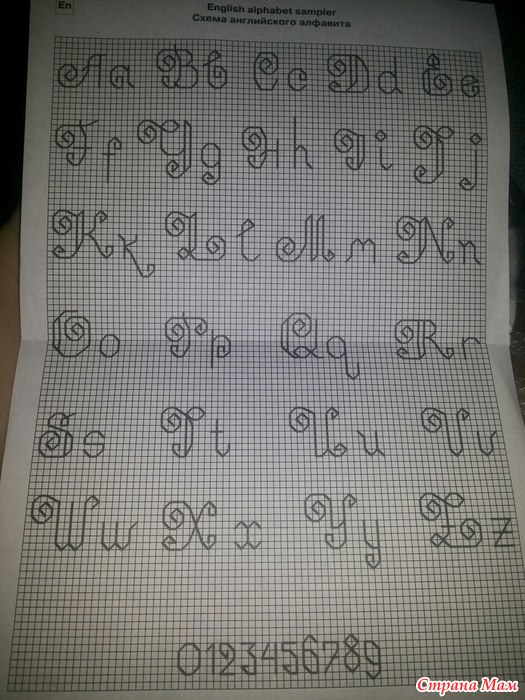 En
English alphabet sampler
Схема английского алфавита
Aa Bb Cc Dd Ee
Ff Gg Hh Ii Jj
Kk Ll Mm Nn
Oo Pp Qq Rr
Ss Tt Uu Vv
Ww Xx Yy Zz
0123456789
Страна Мам